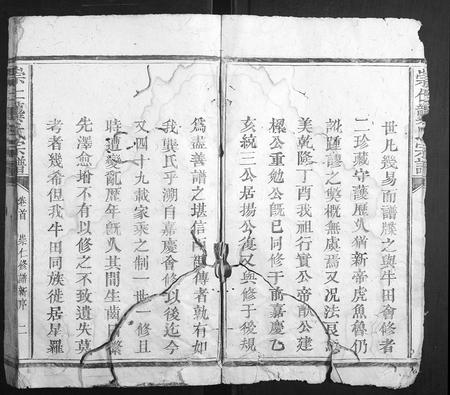 世凡幾易而譜牒之與牛田會修者
二珍藏守護歷久猶新帝虎魚魯仍
訛踵謬之獘概無處焉又况法良
美乾隆丁酉我祖行實公帝猷公建
樑公重勉公旣已同修于前嘉慶乙
亥統三公居揚公復又與修于後規
為盡善譜之堪信而
傳者孰有如
我龔氏乎溯自嘉慶會修以後迄今
又四十九載家乘之制一世一修且
時遭變亂歷年旣久其間生齒日繁
先澤愈增不有以修之不致遺失莫
考者幾希但我牛田同族徙居星羅
崇仁龔氏宗譜
卷首
崇仁修譜新序
二
崇仁龔氏宗譜